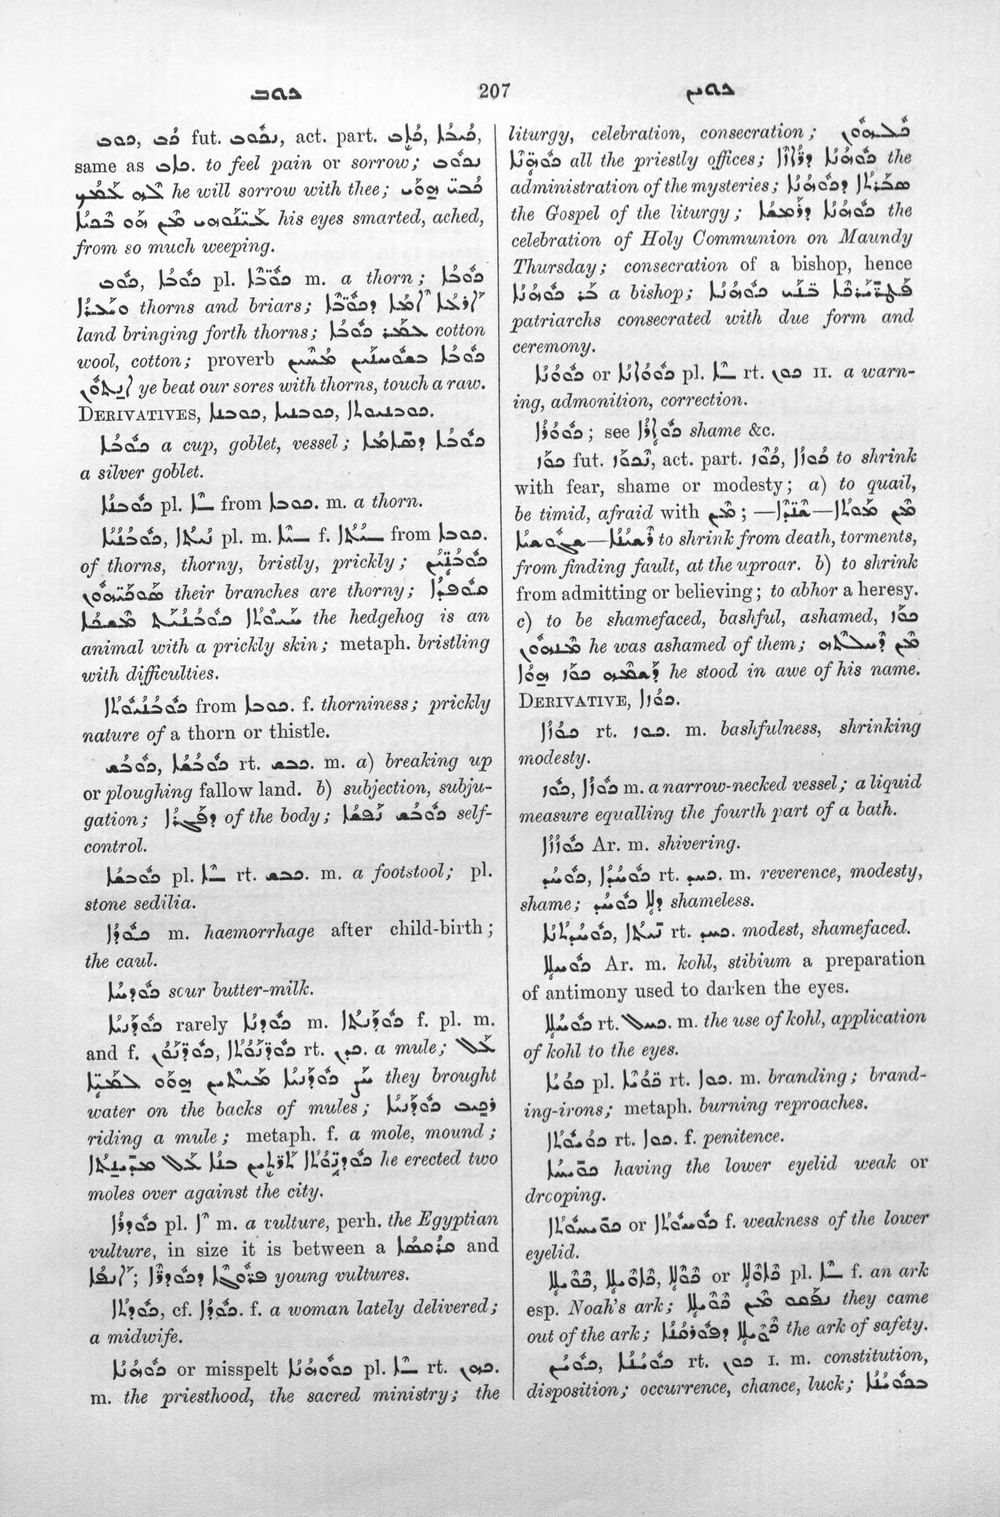 ܟܘܒ 207 ܟܘܝܢ
ܟܘܒ, ܟܒ fut. ܢܟܘܒ, act. part. ܟܐܒ, ܟܝܒܐ,
same as ܟܐܒ. to feel pain or sorrow; ܢܟܘܒ
ܠܗ ܥܡܟ he will sorrow with thee; ܟܝܒ ܗܘܝ
ܥܝܢܘܗܝ ܡܢ ܗܘ ܒܟܝܐ his eyes smarted, ached,
from so much weeping.
ܟܘܒ, ܟܘܒܐ pl. ܟܘܒܐ m. a thorn; ܟܘܒܐ
thorns and briars; ܐܪܥܐ
land bringing forth thorns; ܟܘܒܐ ܕܥܡܪܐ cotton
wool, cotton; proverb ܟܘܒܐ
ye beat our sores with thorns, touch a raw.
DERIVATIVES, ܟܘܒܢܐ, ܟܘܒܢܝܐ, ܟܘܒܢܝܘܬܐ.
ܟܘܒܐ a cup, goblet, vessel; ܟܘܒܐ ܕܣܐܡܐ
a silver goblet.
ܟܘܒܢܐ pl. ܢܐ from ܟܘܒܐ. m. a thorn.
ܟܘܒܢܝܐ, ܢܝܬܐ pl. m. ܢܝܐ f. ܢܝܬܐ from ܟܘܒܐ.
of thorns, thorny, bristly, prickly; ܟܘܒܢܝܢ
ܣܘܟܝܗܘܢ their branches are thorny; ܩܘܦܕܐ
the hedgehog is an
animal with a prickly skin; metaph. bristling
with difficulties.
ܟܘܒܢܝܘܬܐ from ܟܘܒܐ. f. thorniness; prickly
nature of a thorn or thistle.
ܟܘܒܫ, ܟܘܒܫܐ rt. ܟܒܫ. m. a) breaking up
or ploughing fallow land. b) subjection, subju-
gation; ܕܦܓܪܐ of the body; ܟܘܒܫ ܢܦܫܐ self-
control.
ܟܘܒܫܐ pl. ܐ rt. ܟܒܫ. m. a footstool; pl.
stone sedilia.
ܟܘܕܐ m. haemorrhage after child-birth;
the caul.
ܟܘܕܚܐ scur butter-milk.
ܟܘܕܢܝܐ rarely ܟܘܕܢܐ m. ܟܘܕܢܬܐ f. pl. m.
and f. ܟܘܕܢܘܢ, ܟܘܕܢܘܬܐ rt. ܟܕܢ. a mule; ܥܠ
ܟܘܕܢܝܐ ܡܝܬܝܢ ܗܘܘ they brought
water on the backs of mules; ܪܟܝܒ ܟܘܕܢܝܐ
riding a mule; metaph. f. a mole, mound;
ܟܘܕܢܘܬܐ ܬܪܬܝܢ ܒܢܐ ܥܠ ܡܕܝܢܬܐ he erected two
moles over against the city.
ܟܘܕܪܐ pl. ܐ m. a vulture, perh. the Egyptian
vulture, in size it is between a and
young vultures.
ܟܘܕܬܐ, cf. ܟܘܕܐ. f. a woman lately delivered;
a midwife.
ܟܘܗܢܐ or misspelt ܟܘܘܗܢܐ pl. ܐ rt. ܟܗܢ.
m. the priesthood, the sacred ministry; the
liturgy, celebration, consecration; ܟܠܗܘܢ
ܟܘܗܢܐ all the priestly offices; ܟܘܗܢܐ ܕܪܐܙܐ the
administration of the mysteries; ܣܒܪܬܐ ܕܟܘܗܢܐ
the Gospel of the liturgy; ܟܘܗܢܐ the
celebration of Holy Communion on Maundy
Thursday; consecration of a bishop, hence
ܒܪ ܟܘܗܢܐ a bishop; ܦܛܪܝܪܟܐ ܒܢܝ ܟܘܗܢܐ
patriarchs consecrated with due form and
ceremony.
ܟܘܘܢܐ or ܟܘܘܐܢܐ pl. ܐ rt. ܟܘܢ II. a warn-
ing, admonition, correction.
ܟܘܘܪܐ; see ܟܘܐܪܐ shame &c.
ܟܘܙ fut. ܢܟܘܙ, act. part. ܟܐܙ, ܟܝܙܐ to shrink
with fear, shame or modesty; a) to quail,
be timid, afraid with ܡܢ; ܡܢ ܡܘܬܐ—
to shrink from death, torments,
from finding fault, at the uproar. b) to shrink
from admitting or believing; to abhor a heresy.
c) to be shamefaced, bashful, ashamed, ܟܙ
ܡܢܗܘܢ he was ashamed of them; ܡܢ ܕܚܠܬܗ
ܕܫܡܗ ܟܐܙ ܗܘܐ he stood in awe of his name.
DERIVATIVE, ܟܘܙܐ.
ܟܘܙܐ rt. ܟܘܙ. m. bashfulness, shrinking
modesty.
ܟܘܙ, ܟܘܙܐ m. a narrow-necked vessel; a liquid
measure equalling the fourth part of a bath.
ܟܘܙܙܐ Ar. m. shivering.
ܟܘܚܕ, ܟܘܚܕܐ rt. ܟܚܕ. m. reverence, modesty,
shame; ܕܠܐ ܟܘܚܕ shameless.
ܟܘܚܕܢܐ, ܢܝܬܐ rt. ܟܚܕ. modest, shamefaced.
ܟܘܚܠܐ Ar. m. kohl, stibium a preparation
of antimony used to darken the eyes.
ܟܘܚܠܐ rt. ܟܚܠ. m. the use of kohl, application
of kohl to the eyes.
ܟܘܝܐ pl. ܟܘܝܐ rt. ܟܘܐ. m. branding; brand-
ing-irons; metaph. burning reproaches.
ܟܘܝܘܬܐ rt. ܟܘܐ. f. penitence.
ܟܘܝܚܐ having the lower eyelid weak or
drooping.
ܟܘܝܚܘܬܐ or ܟܘܚܘܬܐ f. weakness of the lower
eyelid.
ܟܘܝܠܐ, ܟܐܘܝܠܐ, ܟܘܠܐ or ܟܐܘܠܐ pl. ܐ f. an ark
esp. Noah's ark; ܢܦܩܘ ܡܢ ܟܘܝܠܐ they came
out of the ark; ܟܘܝܠܐ ܕܦܘܪܩܢܐ the ark of safety.
ܟܘܝܢ, ܟܘܝܢܐ rt. ܟܘܢ I. m. constitution,
disposition; occurrence, chance, luck; ܒܟܘܝܢܐ